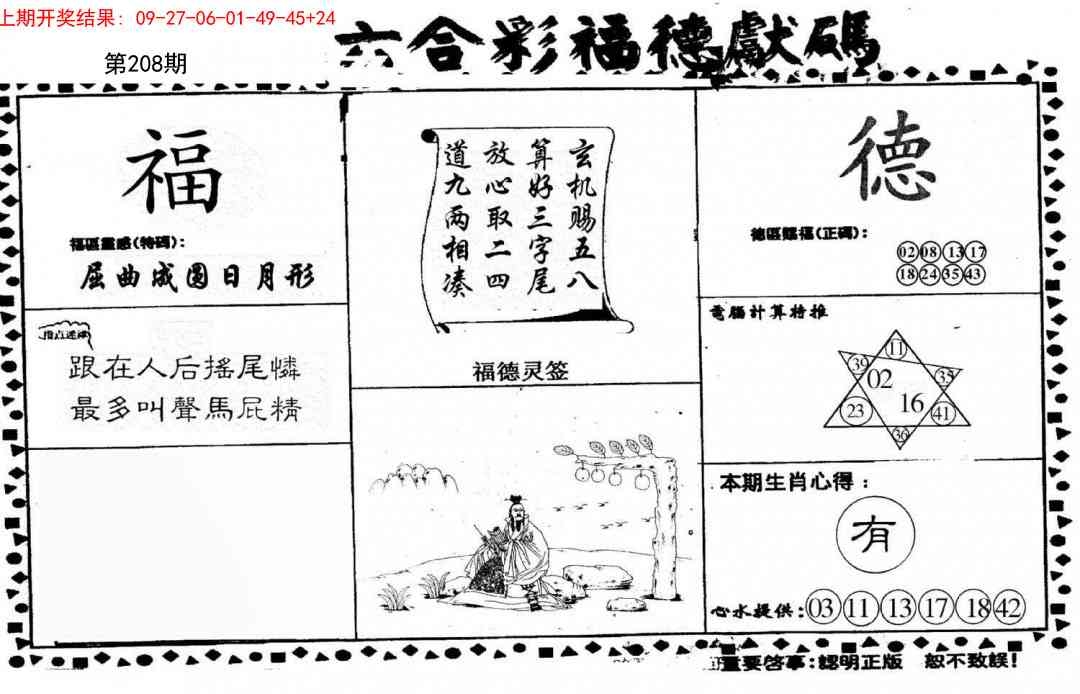 上期开奖结果：09-27-06-01-49-45+24
六合彩福德獻碼
第208期
福
福區靈感(特碼)：
屈曲成圆日月形
跟在人后搖尾憐
最多叫聲馬屁精
玄机赐五八
算好三字尾
放心取二四
道九两相凑
福德灵签
德
德區賜福(正碼)：
02 08 13 17
18 24 35 43
電腦計算特推
11
39 02 35
23 16 41
36
本期生肖心得：
有
心水提供：03 11 13 17 18 42
重要啓事：認明正版 恕不致誤！